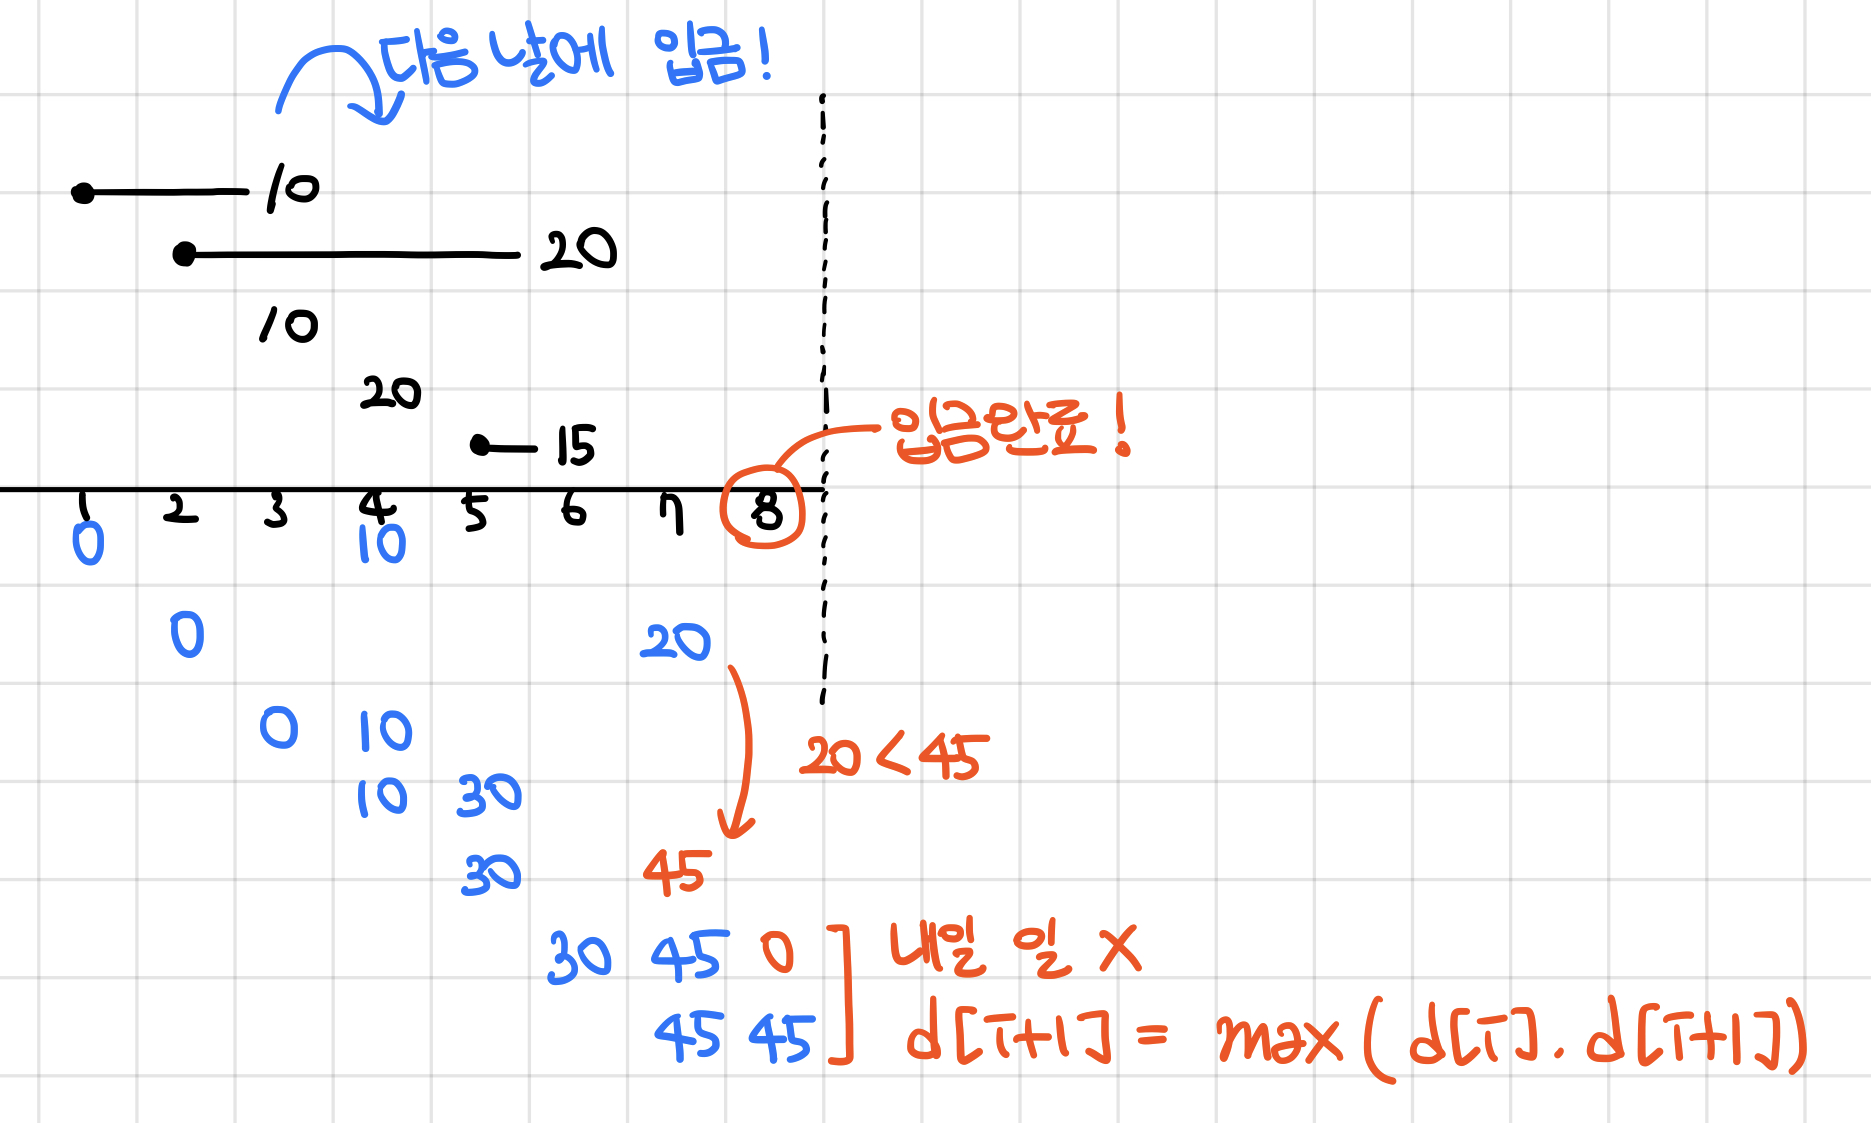 다음 날에 입금!
10
20
10
20
15
입금완료!
1 2 3 4 5 6 7 8
0 10
0 20
0 10
20 < 45
10 30
30 45
30 45 0 내일 일 X
45 45 d[i+1] = max(d[i], d[i+1])